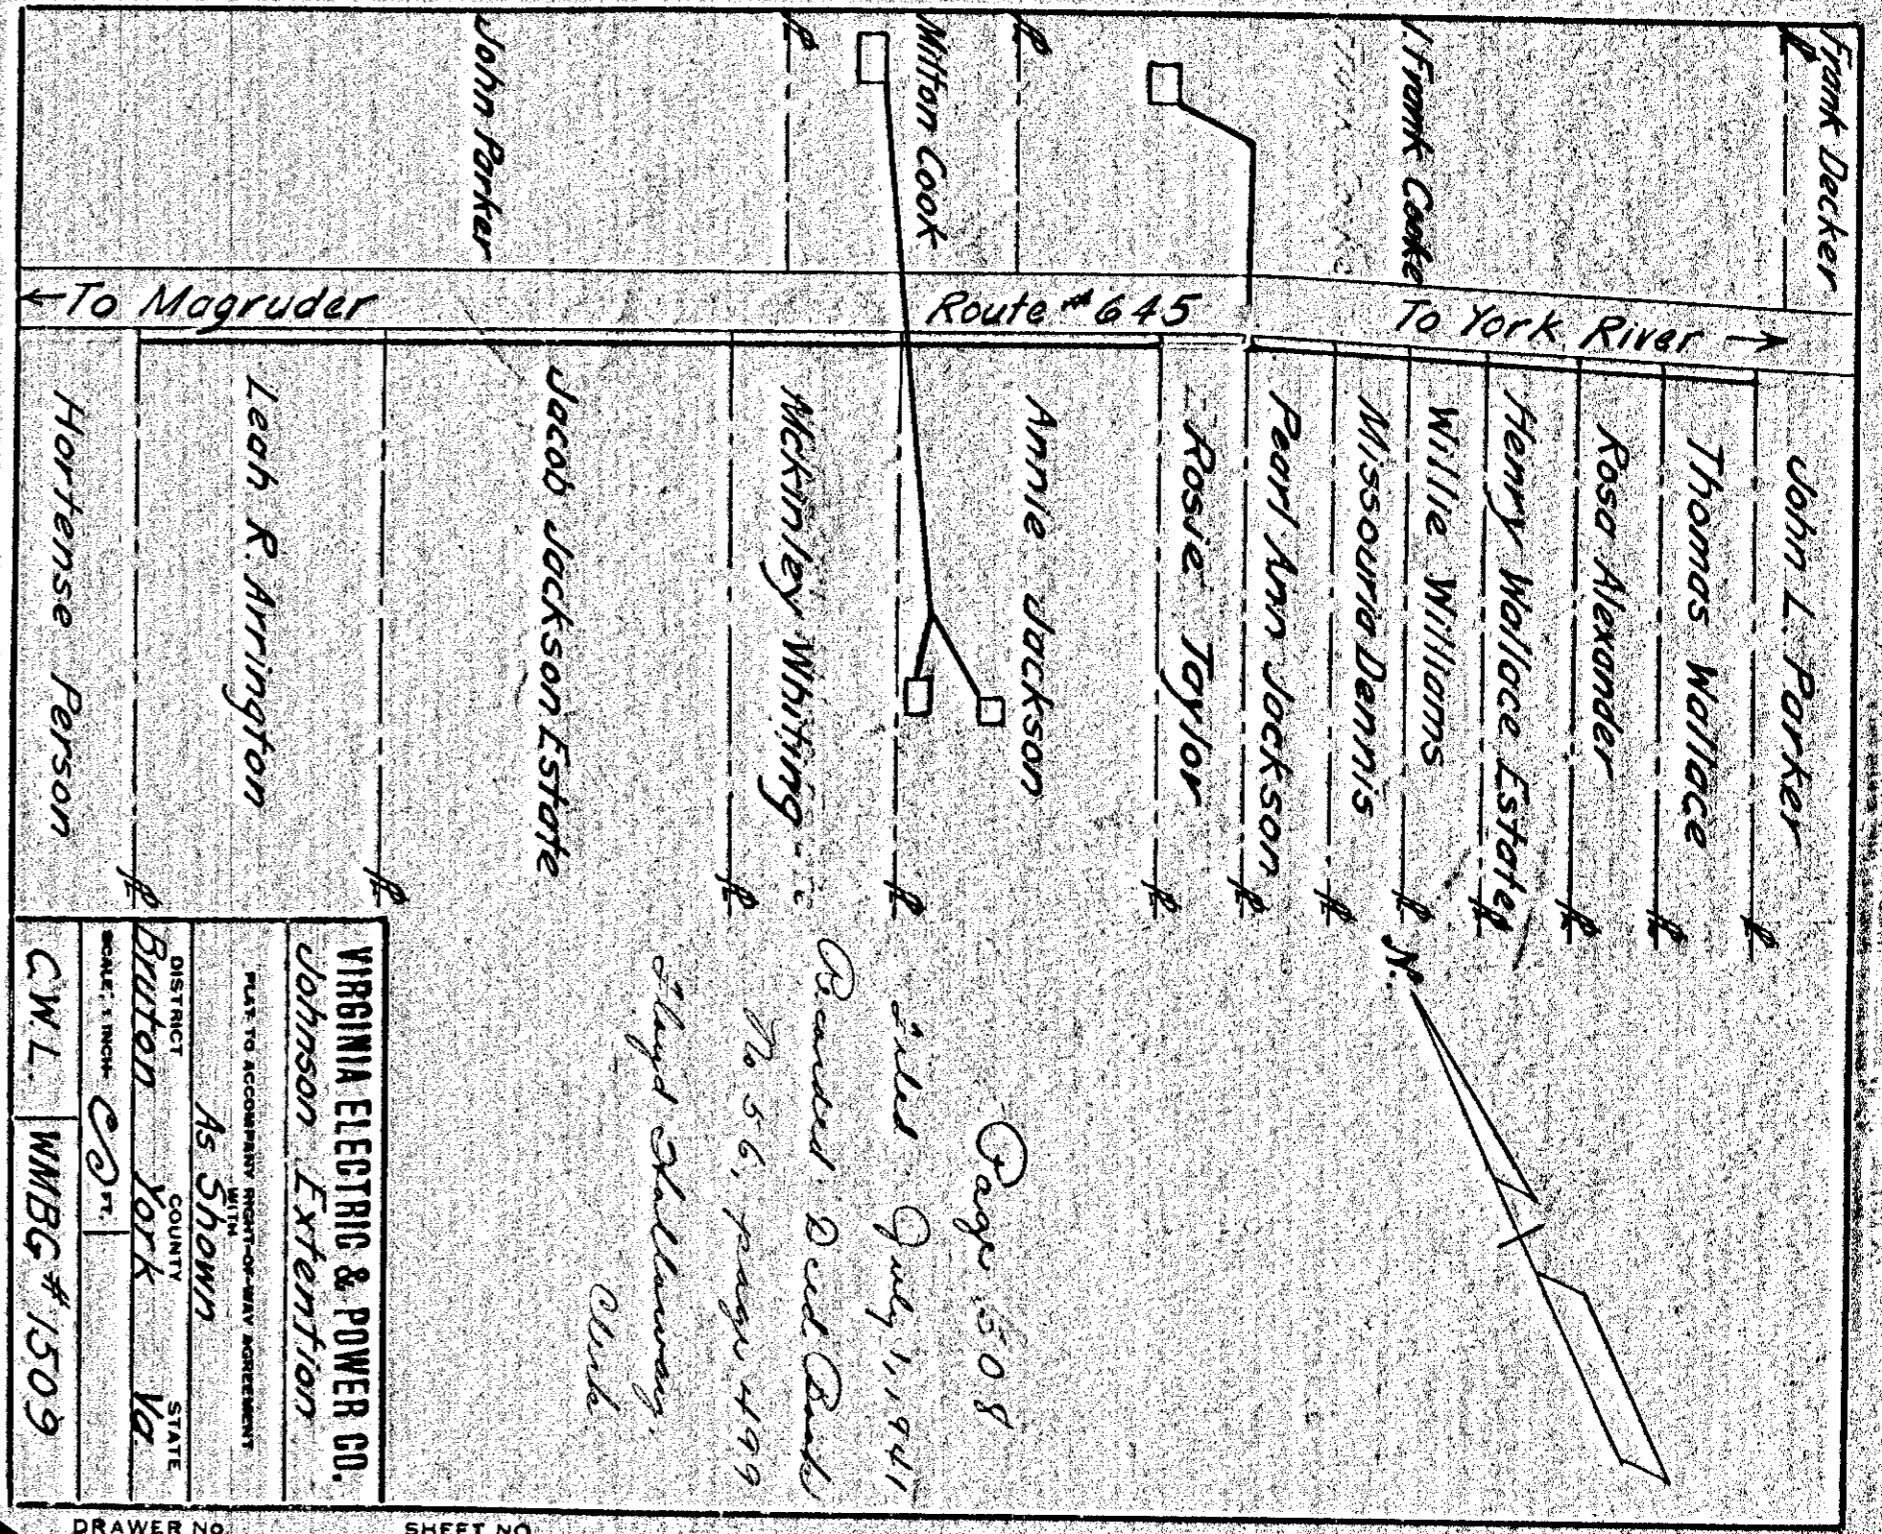 Frank Decker
J. Frank Cooke
Milton Cook
John Parker
← To Magruder
Route # 645
To York River →
John L. Parker
Thomas Wallace
Rosa Alexander
Henry Wallace Estate
Willie Williams
Missouria Dennis
Pearl Ann Jackson
Rosie Taylor
Annie Jackson
McKinley Whiting
Jacob Jackson Estate
Leah R. Arrington
Hortense Person
N.
Page 508
Filed July 1, 1941
Recorded Deed Book
No 56, page 499
Floyd Holloway,
Clerk.
VIRGINIA ELECTRIC & POWER CO.
Johnson Extention
PLAT TO ACCOMPANY RIGHT-OF-WAY AGREEMENT
WITH
As Shown
DISTRICT COUNTY STATE
Bruton York Va.
SCALE: 1 INCH FT.
C.W.L. WMBG # 1509
DRAWER NO. SHEET NO.